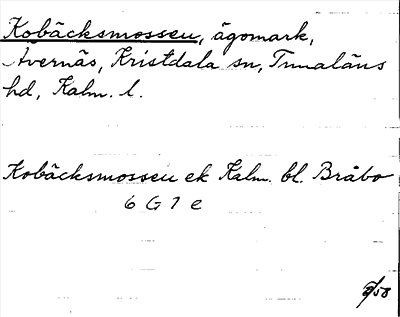 Kobäcksmossen, ägomark,
Åvernäs, Kristdala sn, Tunaläns
hd, Kalm. l.
Kobäcksmossen ek Kalm. bl. Bråbo
6 G 1 e
/58